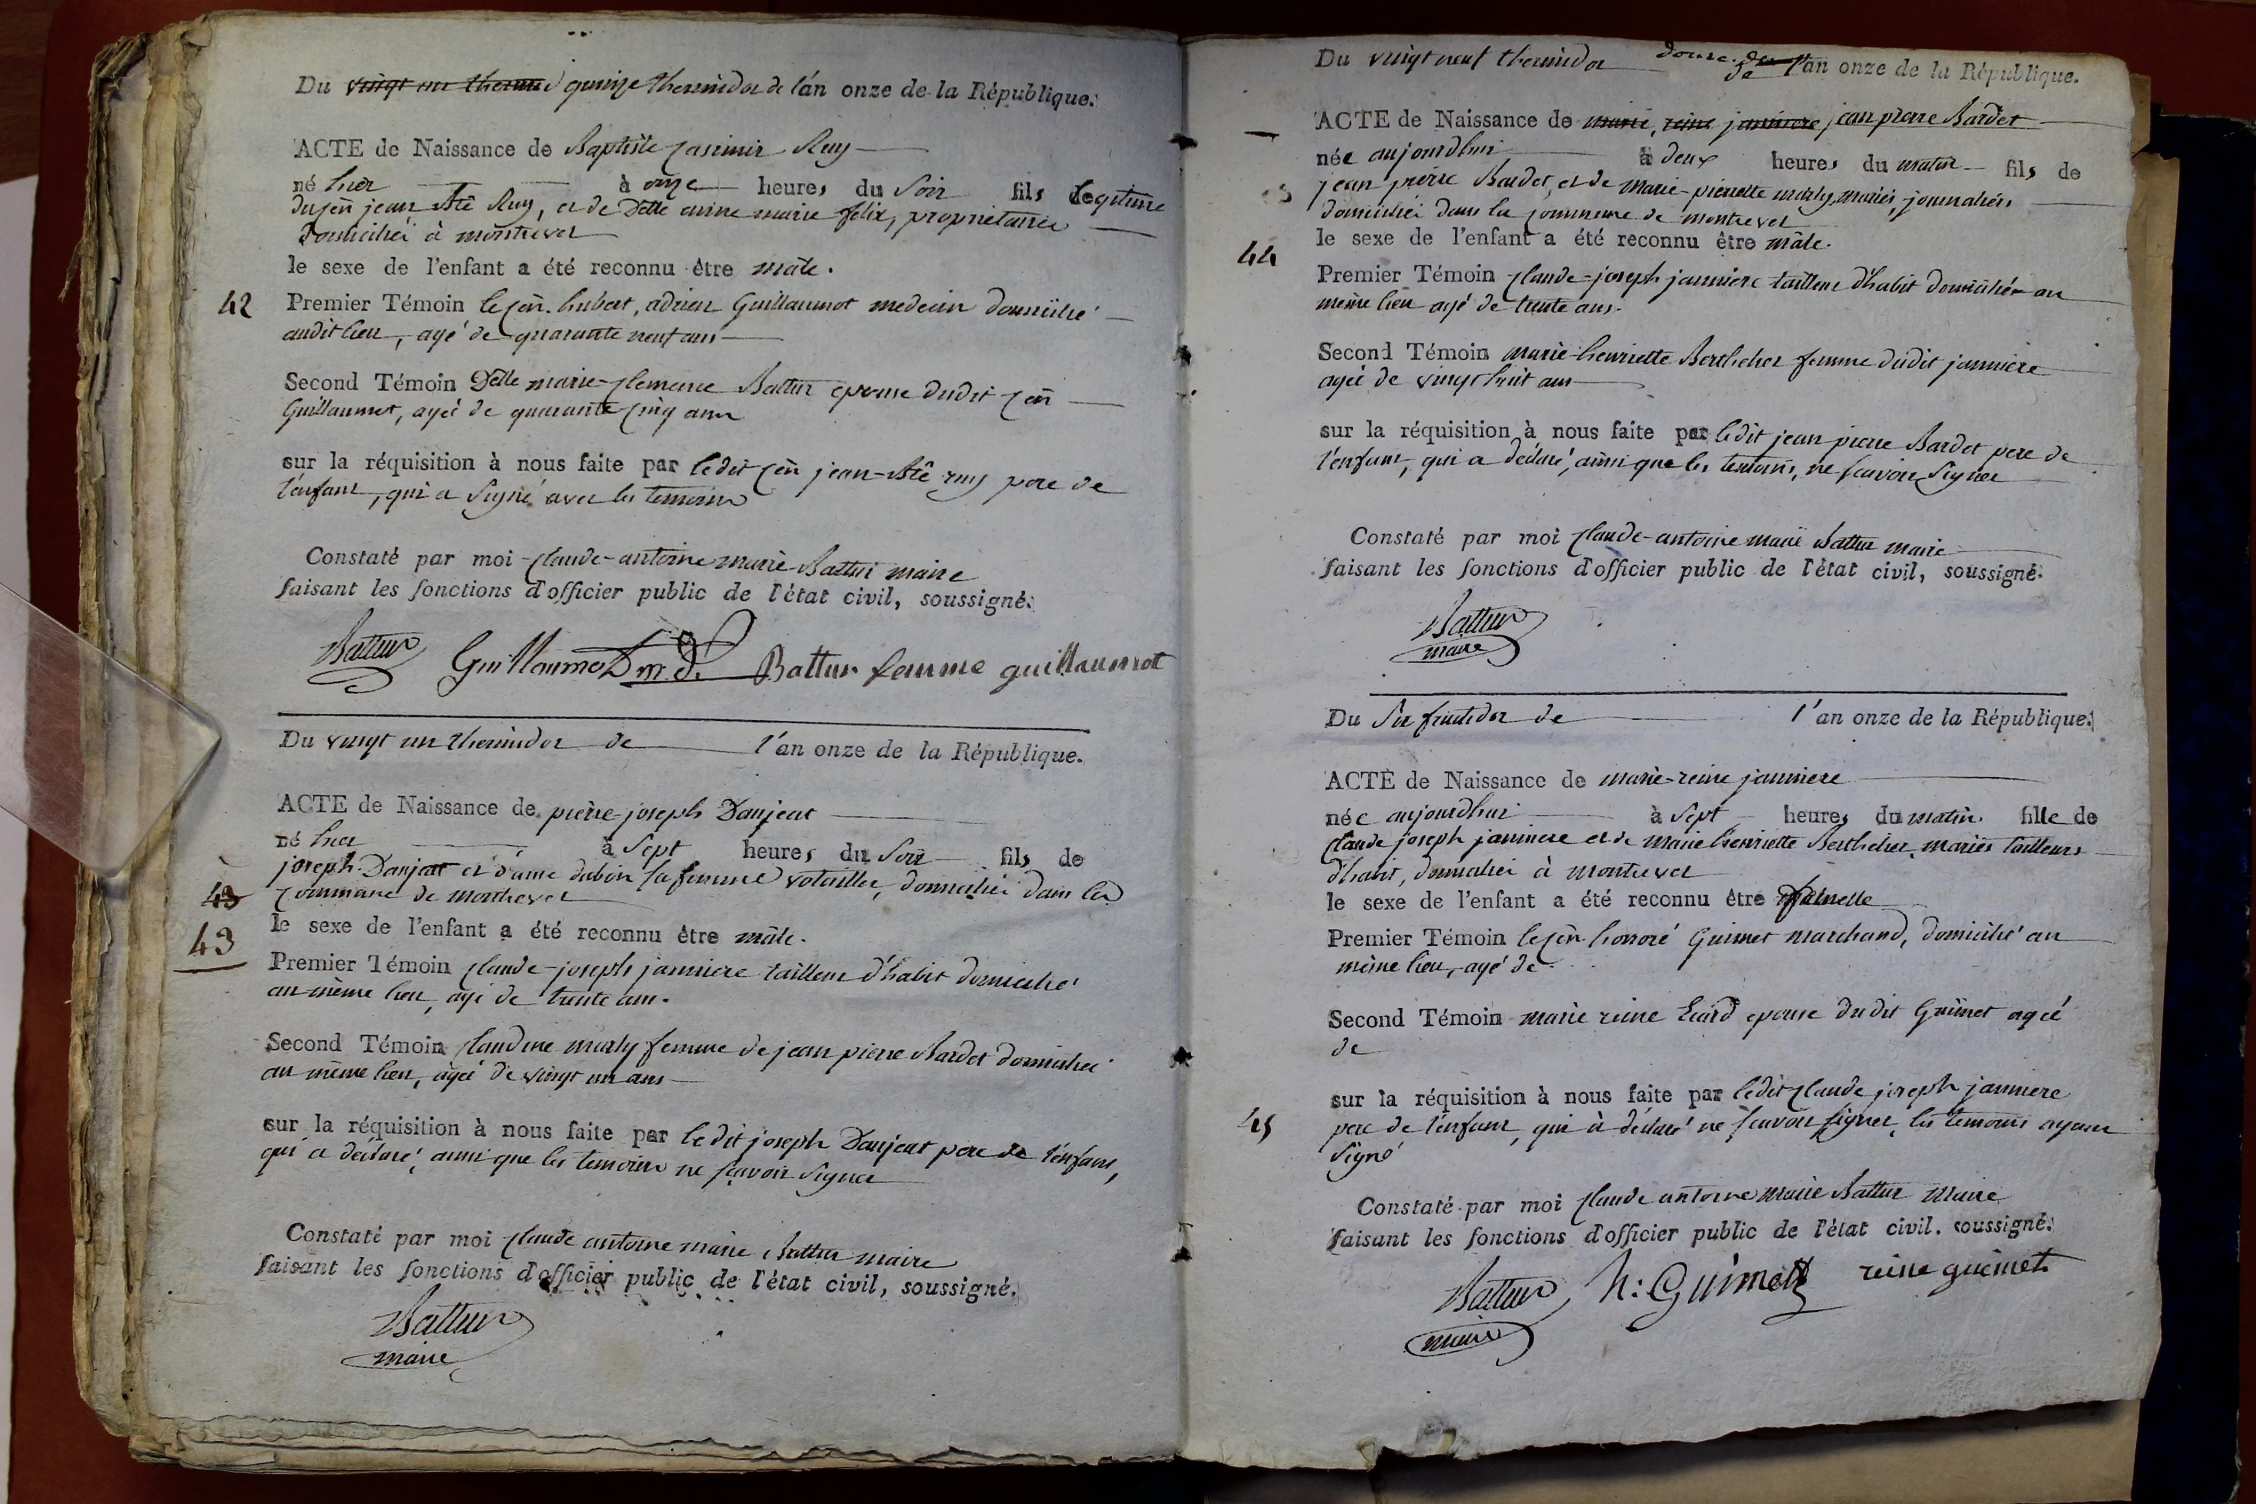 Du vingt un thermi quinze thermidor de l'an onze de la République.
ACTE de Naissance de Baptiste Casimir Ruy
né hier à onze heures du Soir fils legitime
du çen jean Bte Ruy, et de Delle anne marie felix, proprietaires
domiciliés à montrevel
le sexe de l'enfant a été reconnu être mâle.
42
Premier Témoin le çen. hubert, adrien Guillaumot medecin domicilié
audit lieu, agé de quarante neuf ans
Second Témoin Delle marie-Clemence Battur epouse dudit çen
Guillaumot, agée de quarante cinq ans
sur la réquisition à nous faite par ledit çen jean-Bte ruy pere de
l'enfant, qui a signé avec les temoins
Constaté par moi Claude-antoine marie Battur maire
faisant les fonctions d'officier public de l'état civil, soussigné.
Battur Guillaumot m.d. Battur femme guillaumot
Du vingt un thermidor de l'an onze de la République.
ACTE de Naissance de pierre joseph Danjeat
né hier à Sept heures du Soir fils de
joseph Danjeat et d'anne dubois sa femme volailler, domiciliés dans la
43
commune de montrevel
le sexe de l'enfant a été reconnu être mâle.
43
Premier Témoin Claude-joseph janniere tailleur d'habit domicilié
au même lieu, agé de trente ans.
Second Témoin Claudine marly femme de jean pierre Bardet domiciliée
au même lieu, agée de vingt un ans
sur la réquisition à nous faite par ledit joseph Danjeat pere de l'enfant,
qui a déclaré, ainsi que les temoins ne sçavoir signer
Constaté par moi Claude antoine marie Battur maire
faisant les fonctions d'officier public de l'état civil, soussigné.
Battur
maire
Du vingt neuf thermidor douze de l'an onze de la République.
ACTE de Naissance de marie, reine janniere jean pierre Bardet
née aujourdhui à deux heures du matin fils de
jean pierre Bardet, et de marie-pierrette marly, mariés, journaliers
domiciliés dans la commune de montrevel
le sexe de l'enfant a été reconnu être mâle.
44
Premier Témoin Claude-joseph janniere tailleur d'habit domicilié au
même lieu agé de trente ans.
Second Témoin marie-henriette Berthelier femme dudit janniere
agée de vingt huit ans
sur la réquisition à nous faite par ledit jean pierre Bardet pere de
l'enfant, qui a déclaré, ainsi que les temoins, ne sçavoir signer
Constaté par moi Claude-antoine marie Battur maire
faisant les fonctions d'officier public de l'état civil, soussigné.
Battur
maire
Du Six fructidor de l'an onze de la République.
ACTE de Naissance de marie-reine janniere
née aujourdhui à Sept heures du matin. fille de
Claude joseph janniere et de marie henriette Berthelier, mariés tailleurs
d'habit, domiciliés à montrevel
le sexe de l'enfant a été reconnu être femelle
Premier Témoin le çen honoré Guimet marchand, domicilié au
même lieu, agé de
Second Témoin marie reine Ecard epouse dudit Guimet agée
de
sur la réquisition à nous faite par ledit Claude joseph janniere
45
pere de l'enfant, qui à déclaré ne sçavoir signer, les temoins ayant
signé
Constaté par moi Claude antoine marie Battur maire
faisant les fonctions d'officier public de l'état civil. soussigné.
Battur h: Guimet reine guimet
maire